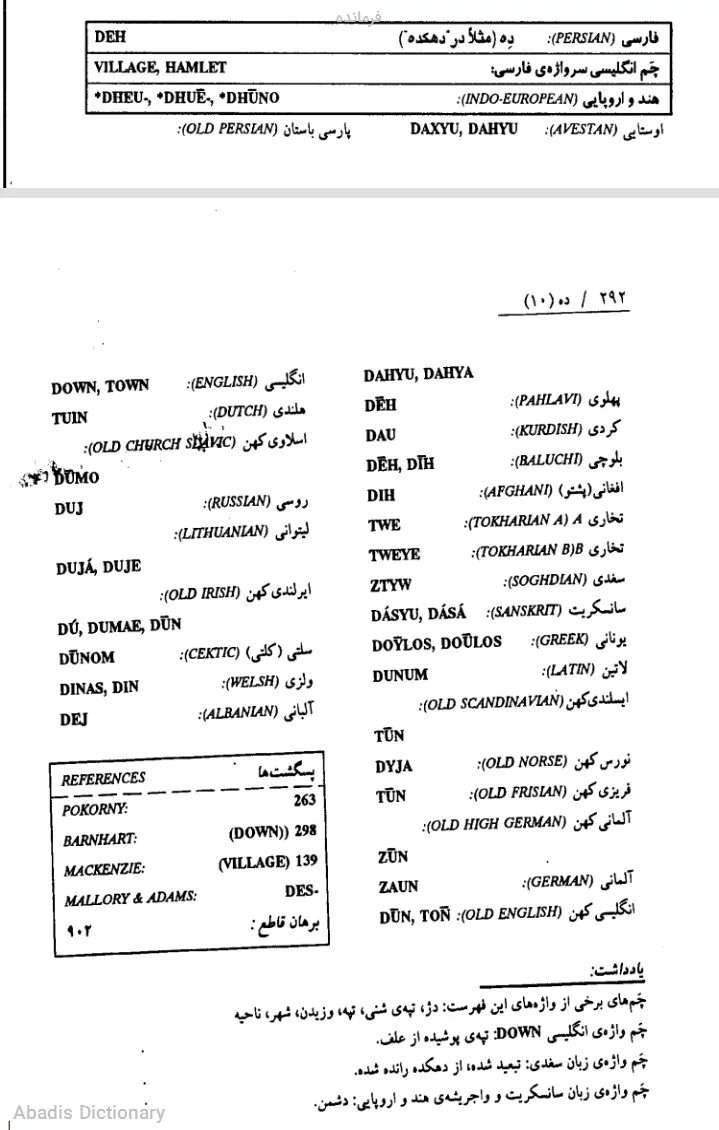 فرمانده
فارسی (PERSIAN): ده (مثلاً در "دهکده") DEH
چَم انگلیسی سرواژه‌ی فارسی: VILLAGE, HAMLET
هند و اروپایی (INDO-EUROPEAN): *DHEU-, *DHUĒ-, *DHŪNO
اوستایی (AVESTAN): DAXYU, DAHYU پارسی باستان (OLD PERSIAN):
۲۹۲ / ده (۱۰)
DAHYU, DAHYA
پهلوی (PAHLAVI): DĒH
کردی (KURDISH): DAU
بلوچی (BALUCHI): DĒH, DĪH
افغانی (پشتو) (AFGHANI): DIH
تخاری A (TOKHARIAN A): TWE
تخاری B (TOKHARIAN B): TWEYE
سغدی (SOGHDIAN): ZTYW
سانسکریت (SANSKRIT): DÁSYU, DÁSÁ
یونانی (GREEK): DOȲLOS, DOŪLOS
لاتین (LATIN): DUNUM
ایسلندی کهن (OLD SCANDINAVIAN):
TŪN
نورس کهن (OLD NORSE): DYJA
فریزی کهن (OLD FRISIAN): TŪN
آلمانی کهن (OLD HIGH GERMAN):
ZŪN
آلمانی (GERMAN): ZAUN
انگلیسی کهن (OLD ENGLISH): DŪN, TOÑ
انگلیسی (ENGLISH): DOWN, TOWN
هلندی (DUTCH): TUIN
اسلاوی کهن (OLD CHURCH SLAVIC):
DŪMO
روسی (RUSSIAN): DUJ
لیتوانی (LITHUANIAN):
DUJÁ, DUJE
ایرلندی کهن (OLD IRISH):
DÚ, DUMAE, DŪN
سلتی (کلتی) (CEKTIC): DŪNOM
ولزی (WELSH): DINAS, DIN
آلبانی (ALBANIAN): DEJ
پسگشت‌ها REFERENCES
POKORNY: 263
BARNHART: (DOWN)) 298
MACKENZIE: (VILLAGE) 139
MALLORY & ADAMS: DES-
برهان قاطع: ۹۰۲
یادداشت:
چَم‌های برخی از واژه‌های این فهرست: دژ، تپه‌ی شنی، تپه، وزیدن، شهر، ناحیه
چَم واژه‌ی انگلیسی DOWN: تپه‌ی پوشیده از علف.
چَم واژه‌ی زبان سغدی: تبعید شده، از دهکده رانده شده.
چَم واژه‌ی زبان سانسکریت و واجریشه‌ی هند و اروپایی: دشمن.
Abadis Dictionary